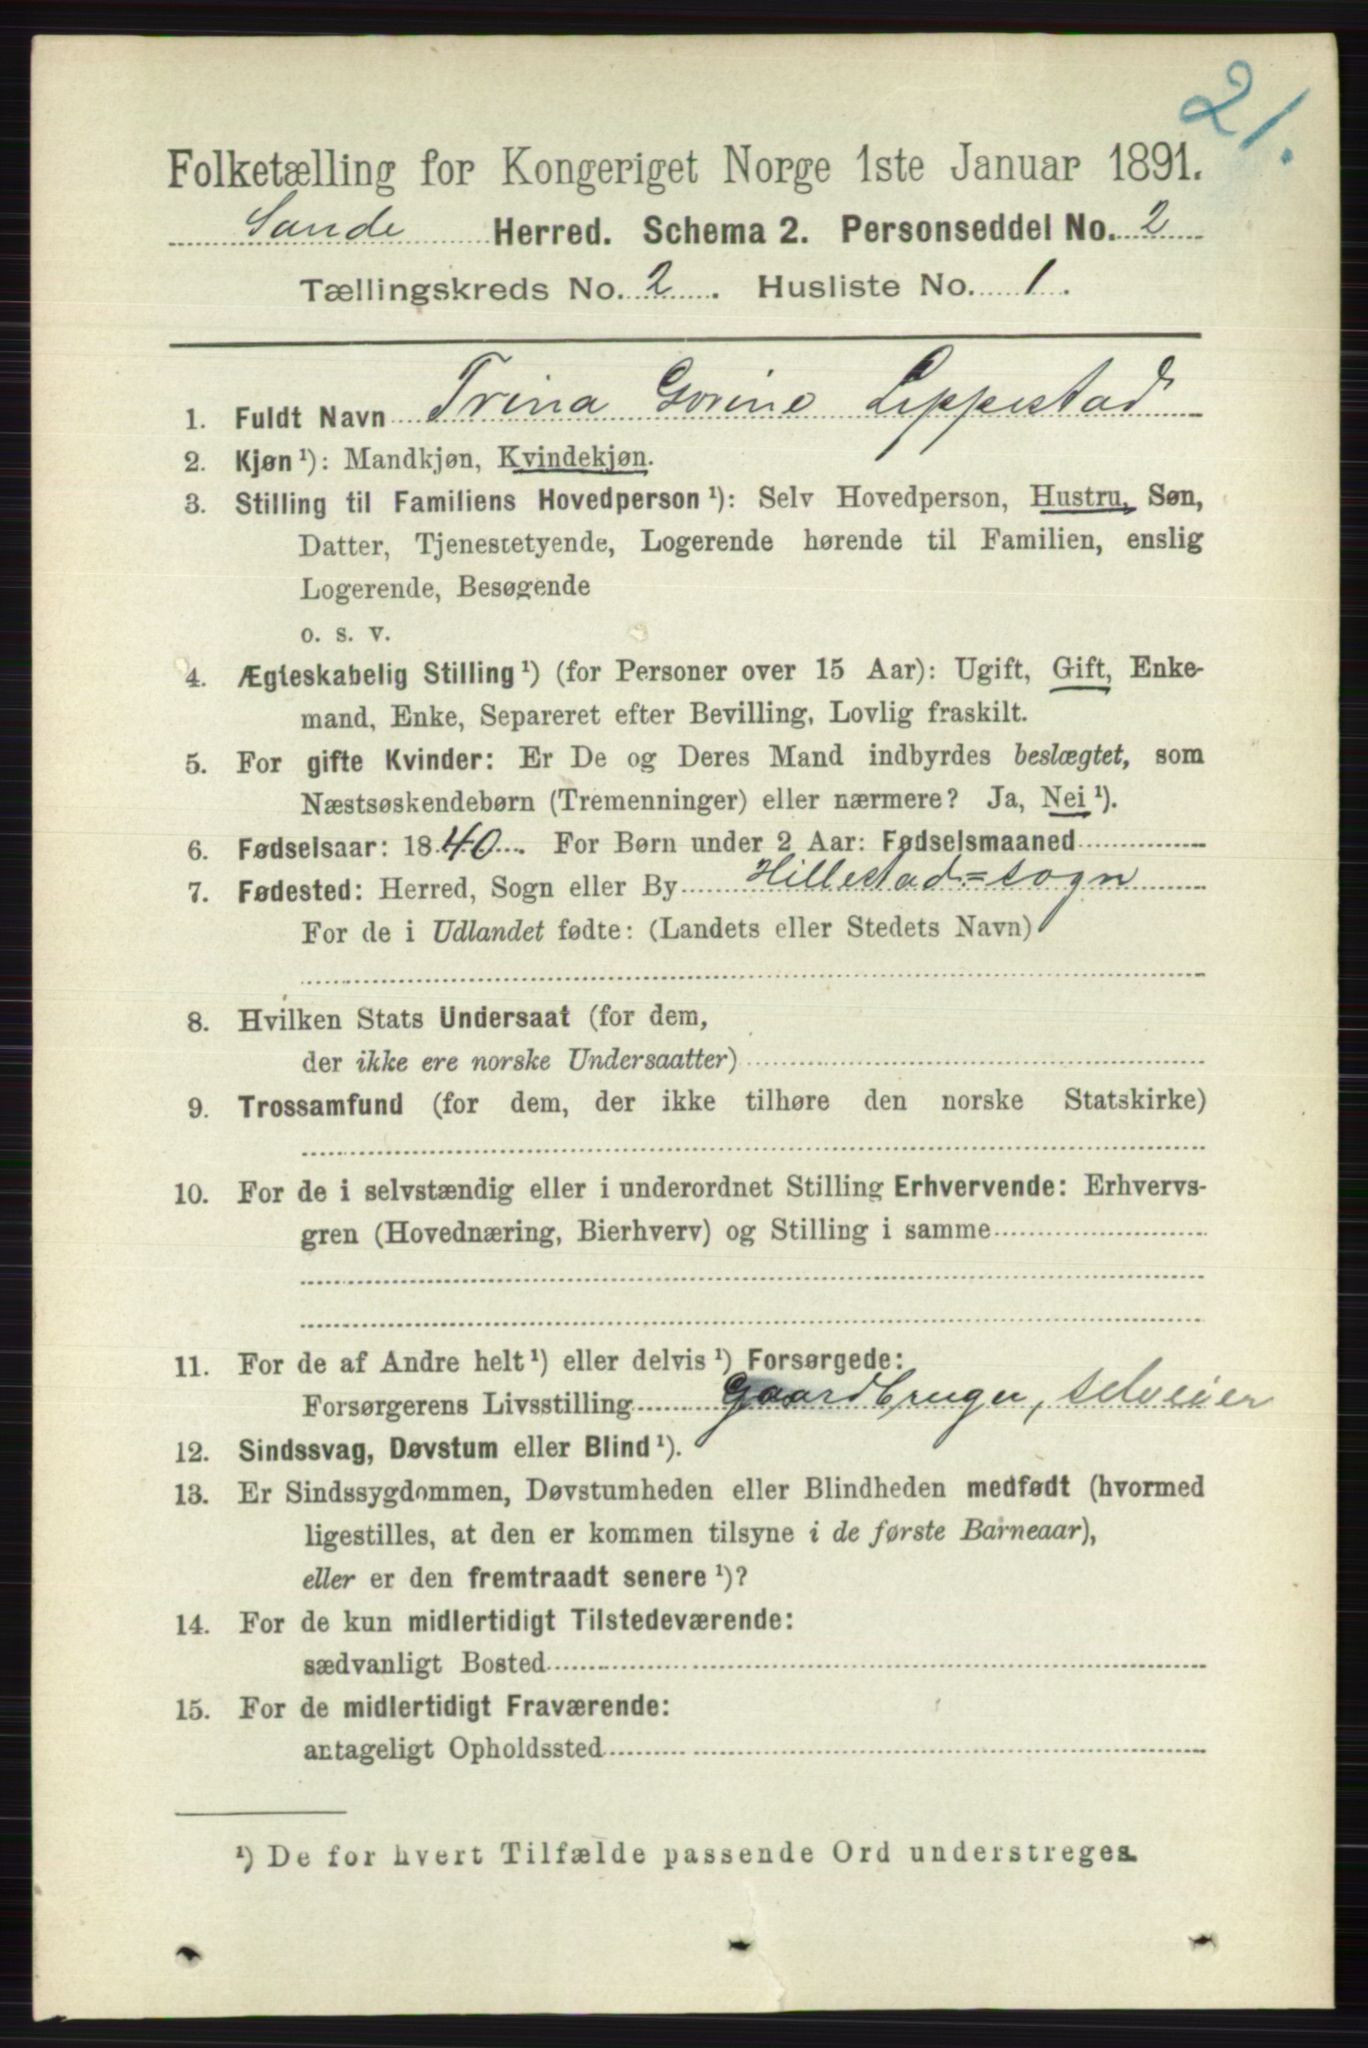 21.
Folketælling for Kongeriget Norge 1ste Januar 1891.
Sande Herred. Schema 2. Personseddel No. 2
Tællingskreds No. 2. Husliste No. 1.
1. Fuldt Navn Trina Gorine Lippestad
2. Kjøn ¹): Mandkjøn, Kvindekjøn.
3. Stilling til Familiens Hovedperson ¹): Selv Hovedperson, Hustru, Søn,
Datter, Tjenestetyende, Logerende hørende til Familien, enslig
Logerende, Besøgende
o. s. v.
4. Ægteskabelig Stilling ¹) (for Personer over 15 Aar): Ugift, Gift, Enke-
mand, Enke, Separeret efter Bevilling, Lovlig fraskilt.
5. For gifte Kvinder: Er De og Deres Mand indbyrdes beslægtet, som
Næstsøskendebørn (Tremenninger) eller nærmere? Ja, Nei ¹).
6. Fødselsaar: 1840. For Børn under 2 Aar: Fødselsmaaned
7. Fødested: Herred, Sogn eller By Hillestad=sogn
For de i Udlandet fødte: (Landets eller Stedets Navn)
8. Hvilken Stats Undersaat (for dem,
der ikke ere norske Undersaatter)
9. Trossamfund (for dem, der ikke tilhøre den norske Statskirke)
10. For de i selvstændig eller i underordnet Stilling Erhvervende: Erhvervs-
gren (Hovednæring, Bierhverv) og Stilling i samme
11. For de af Andre helt ¹) eller delvis ¹) Forsørgede:
Forsørgerens Livsstilling Gaardbruger, selveier
12. Sindssvag, Døvstum eller Blind ¹).
13. Er Sindssygdommen, Døvstumheden eller Blindheden medfødt (hvormed
ligestilles, at den er kommen tilsyne i de første Barneaar),
eller er den fremtraadt senere ¹)?
14. For de kun midlertidigt Tilstedeværende:
sædvanligt Bosted
15. For de midlertidigt Fraværende:
antageligt Opholdssted
¹) De for hvert Tilfælde passende Ord understreges.